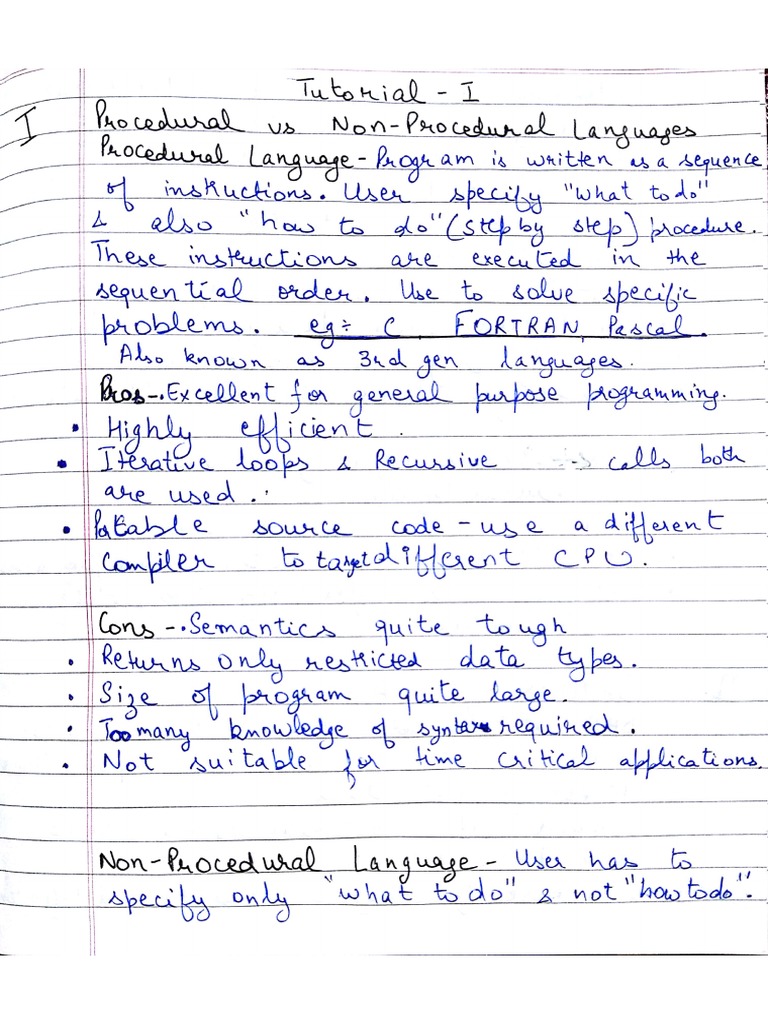 Tutorial - I
I
Procedural vs Non-Procedural Languages
Procedural Language - Program is written as a sequence
of instructions. User specify "what to do"
& also "how to do" (step by step) procedure.
These instructions are executed in the
sequential order. Use to solve specific
problems. eg:- C, FORTRAN, Pascal.
Also known as 3rd gen languages.
Pros - • Excellent for general purpose programming.
• Highly efficient.
• Iterative loops & Recursive calls both
are used.
• Portable source code - use a different
compiler to target different CPU.
Cons - • Semantics quite tough
• Returns only restricted data types.
• Size of program quite large.
• Too many knowledge of syntax required.
• Not suitable for time critical applications.
Non-Procedural Language - User has to
specify only "what to do" & not "how to do".